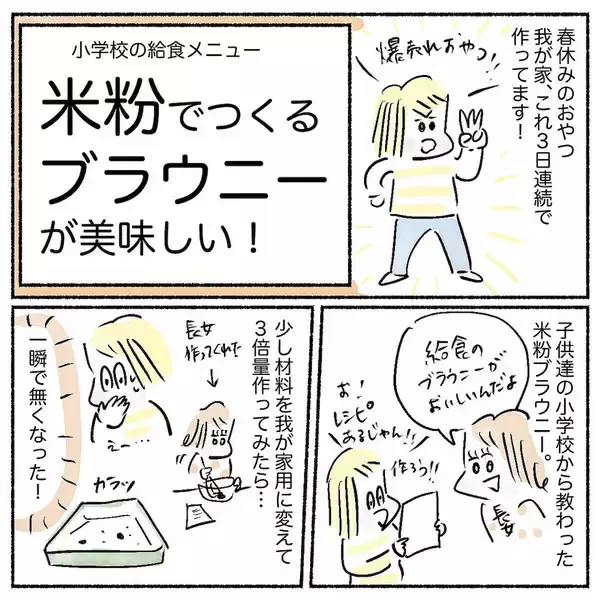 小学校の給食メニュー
米粉でつくる
ブラウニー
が美味しい！
春休みのおやつ
我が家、これ3日連続で
作ってます！
爆売れおやつ！
子供達の小学校から教わった
米粉ブラウニー。
給食の
ブラウニーが
おいしいんだよ
長女
お！
レシピ
あるじゃん！！
作ろう！！
少し材料を我が家用に変えて
3倍量作ってみたら…
長女
作ってくれた
えー…
カラッ
一瞬で無くなった！